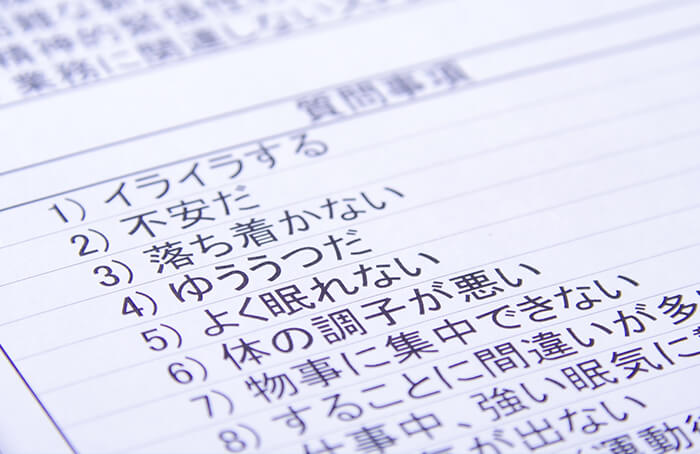 精神的緊張
業務に関連しない
質問事項
1) イライラする
2) 不安だ
3) 落ち着かない
4) ゆううつだ
5) よく眠れない
6) 体の調子が悪い
7) 物事に集中できない
8) することに間違いが多
仕事中、強い眠気に
が出ない
運動後